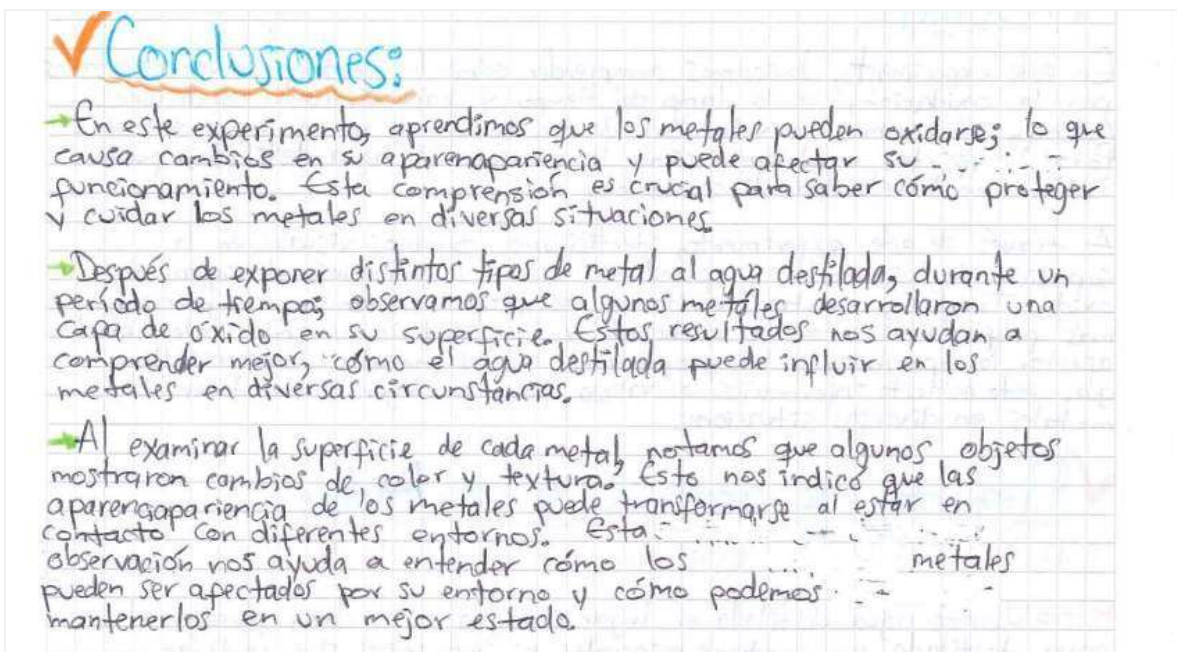 Conclusiones:
En este experimento, aprendimos que los metales pueden oxidarse; lo que
causa cambios en su aparenapariencia y puede afectar su
funcionamiento. Esta comprensión es crucial para saber cómo proteger
y cuidar los metales en diversas situaciones.
Después de exponer distintos tipos de metal al agua destilada, durante un
período de tiempo; observamos que algunos metales desarrollaron una
capa de óxido en su superficie. Estos resultados nos ayudan a
comprender mejor, cómo el agua destilada puede influir en los
metales en diversas circunstancias.
Al examinar la superficie de cada metal, notamos que algunos objetos
mostraron cambios de color y textura. Esto nos indicó que las
aparenciapariencia de los metales puede transformarse al estar en
contacto con diferentes entornos. Esta
observación nos ayuda a entender cómo los metales
pueden ser afectados por su entorno y cómo podemos
mantenerlos en un mejor estado.